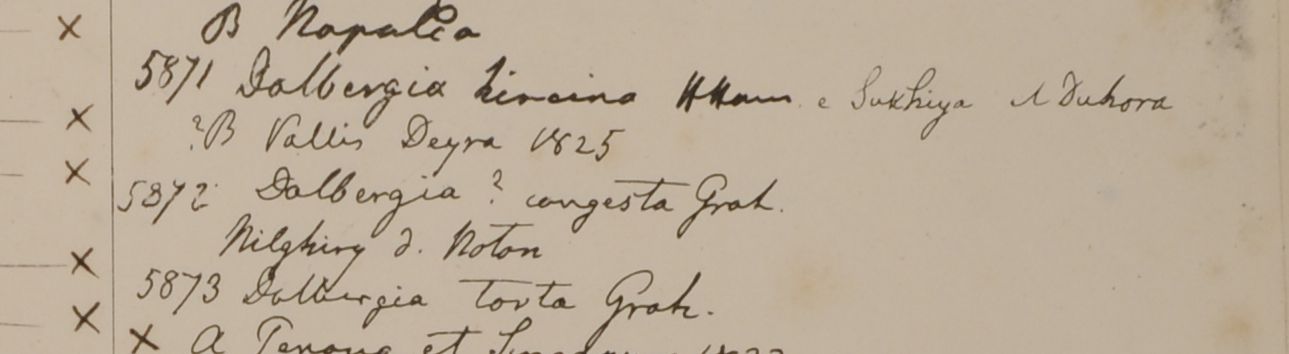 B Napalia
5871 Dalbergia hircina HHam e Sukhiya A Duhora
?B Vallis Deyra 1825
5872 Dalbergia ? congesta Grah.
Nilghiry d. Noton
5873 Dalbergia torta Grah.
A Penang et